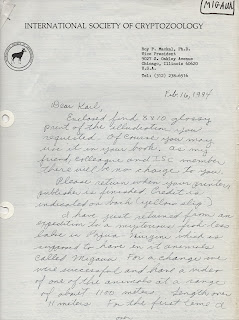 MIGAUA
INTERNATIONAL SOCIETY OF CRYPTOZOOLOGY
Roy P. Mackal, Ph.D.
Vice President
9027 S. Oakley Avenue
Chicago, Illinois 60620
U.S.A.
Tel: (312) 238-6514
Feb. 16, 1994
Dear Karl,
Enclosed find 8X10 glossy
print of the illustration you
requested. Of course you may
use it in your book. As my
friend, colleague and ISC member
there will be no charge to you.
Please return when your printer,
publisher is finished. Credit is
indicated on back (yellow slip)
I have just returned from an
expedition to a mysterious
lake in Papua Guinea which is
supposed to have in it animals
called Migaua. For a change we
were successful and had a video
of one of the animals at a range
of about 1100 meters. Length over
11 meters. For the first time I
over